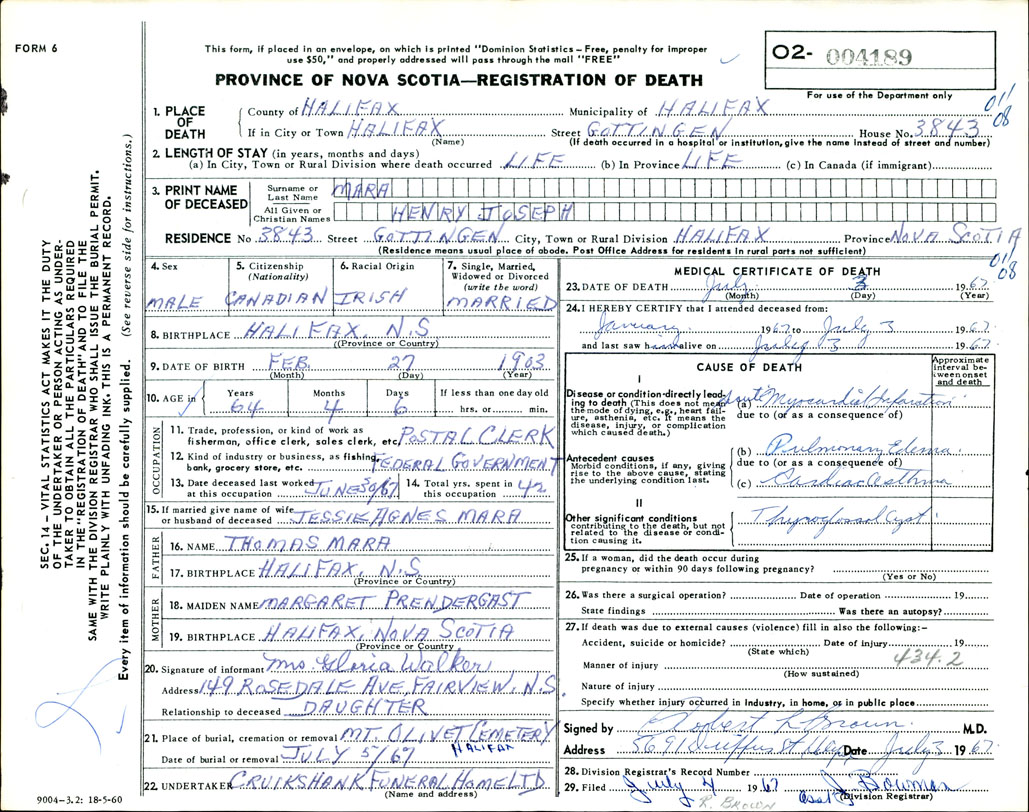 FORM 6
This form, if placed in an envelope, on which is printed "Dominion Statistics – Free, penalty for improper
use $50," and properly addressed will pass through the mail "FREE"
O2- 004189
For use of the Department only
PROVINCE OF NOVA SCOTIA—REGISTRATION OF DEATH
011
08
1. PLACE OF DEATH
County of HALIFAX Municipality of HALIFAX
If in City or Town HALIFAX Street GOTTINGEN House No. 3843
(Name) (If death occurred in a hospital or institution, give the name instead of street and number)
2. LENGTH OF STAY (in years, months and days)
(a) In City, Town or Rural Division where death occurred LIFE (b) In Province LIFE (c) In Canada (if immigrant)
3. PRINT NAME OF DECEASED
Surname or Last Name MARA
All Given or Christian Names HENRY JOSEPH
RESIDENCE No 3843 Street GOTTINGEN City, Town or Rural Division HALIFAX Province NOVA SCOTIA
(Residence means usual place of abode. Post Office Address for residents in rural parts not sufficient)
011
08
4. Sex MALE
5. Citizenship (Nationality) CANADIAN
6. Racial Origin IRISH
7. Single, Married, Widowed or Divorced (write the word) MARRIED
8. BIRTHPLACE HALIFAX, N.S
(Province or Country)
9. DATE OF BIRTH FEB. 27 1903
(Month) (Day) (Year)
10. AGE in Years Months Days If less than one day old
64 4 6 hrs. or min.
OCCUPATION
11. Trade, profession, or kind of work as
fisherman, office clerk, sales clerk, etc POSTAL CLERK
12. Kind of industry or business, as fishing,
bank, grocery store, etc. FEDERAL GOVERNMENT
13. Date deceased last worked at this occupation JUNE 30/67
14. Total yrs. spent in this occupation 42
15. If married give name of wife
or husband of deceased JESSIE AGNES MARA
FATHER
16. NAME THOMAS MARA
17. BIRTHPLACE HALIFAX, N.S
(Province or Country)
MOTHER
18. MAIDEN NAME MARGARET PRENDERGAST
19. BIRTHPLACE HALIFAX, NOVA SCOTIA
(Province or Country)
20. Signature of informant Mrs. Gloria Walker
Address 149 ROSEDALE AVE, FAIRVIEW, N.S.
Relationship to deceased DAUGHTER
21. Place of burial, cremation or removal MT. OLIVET CEMETERY
HALIFAX
Date of burial or removal JULY 5/67
22. UNDERTAKER CRUIKSHANK FUNERAL HOME LTD
(Name and address)
MEDICAL CERTIFICATE OF DEATH
23. DATE OF DEATH July 3 1967
(Month) (Day) (Year)
24. I HEREBY CERTIFY that I attended deceased from:
January 1967 to July 3 1967
and last saw him alive on July 3 1967
CAUSE OF DEATH
Approximate interval between onset and death
I
Disease or condition directly leading to death (This does not mean
the mode of dying, e.g., heart failure, asthenia, etc. It means the
disease, injury, or complication
which caused death.)
(a) Acute Myocardial Infarction
due to (or as a consequence of)
Antecedent causes
Morbid conditions, if any, giving
rise to the above cause, stating
the underlying condition last.
(b) Pulmonary Edema
due to (or as a consequence of)
(c) Cardiac Asthma
II
Other significant conditions
contributing to the death, but not
related to the disease or condition causing it.
Thyroglossal Cyst
25. If a woman, did the death occur during
pregnancy or within 90 days following pregnancy?
(Yes or No)
26. Was there a surgical operation? Date of operation 19
State findings Was there an autopsy?
27. If death was due to external causes (violence) fill in also the following:–
Accident, suicide or homicide? Date of injury 19
(State which)
434.2
Manner of injury
(How sustained)
Nature of injury
Specify whether injury occurred in industry, in home, or in public place
Signed by Robert L Brown M.D.
Address 5691 Duffus St Date July 3 1967
28. Division Registrar's Record Number
29. Filed July 4 1967 Bowman
(Division Registrar)
R. BROWN
SEC. 14 – VITAL STATISTICS ACT MAKES IT THE DUTY
OF THE UNDERTAKER OR PERSON ACTING AS UNDERTAKER TO OBTAIN ALL THE PARTICULARS REQUIRED
IN THE "REGISTRATION OF DEATH" AND TO FILE THE
SAME WITH THE DIVISION REGISTRAR WHO SHALL ISSUE THE BURIAL PERMIT.
WRITE PLAINLY WITH UNFADING INK. THIS IS A PERMANENT RECORD.
Every item of information should be carefully supplied. (See reverse side for instructions.)
9004–3.2: 18-5-60